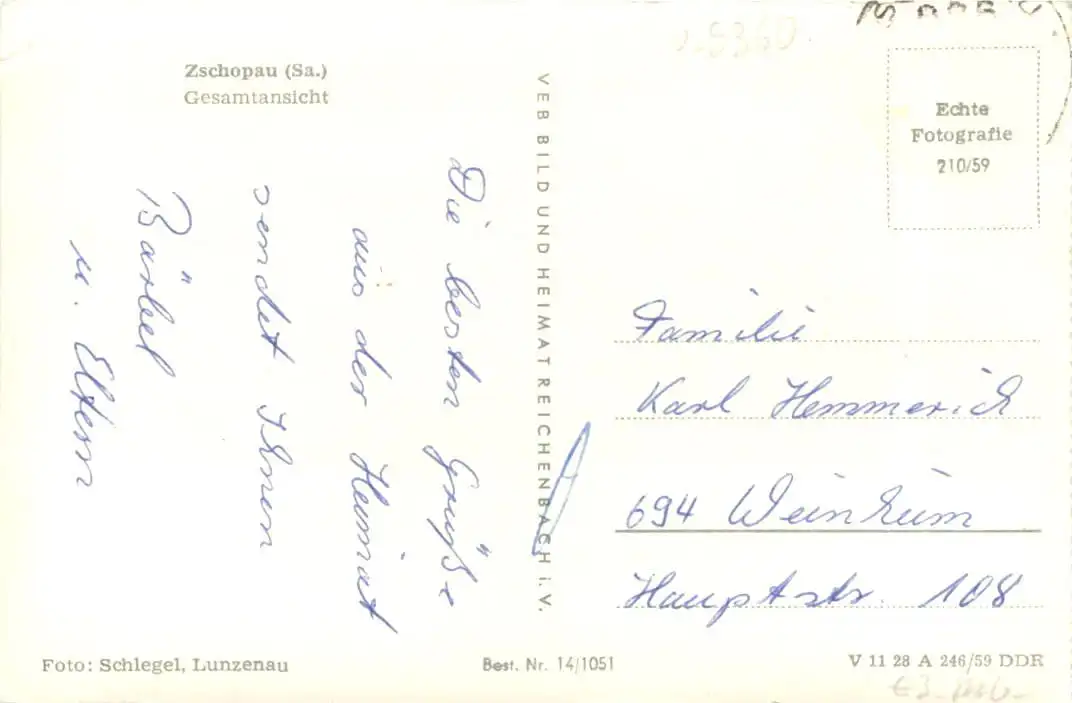 Zschopau (Sa.)
Gesamtansicht
Die besten Grüße
aus der Heimat
sendet Ihnen
Bärbel
u. Eltern
VEB BILD UND HEIMAT REICHENBACH i. V.
Echte
Fotografie
210/59
Familie
Karl Hemmerich
694 Weinheim
Hauptstr. 108
Foto: Schlegel, Lunzenau
Best. Nr. 14/1051
V 11 28 A 246/59 DDR